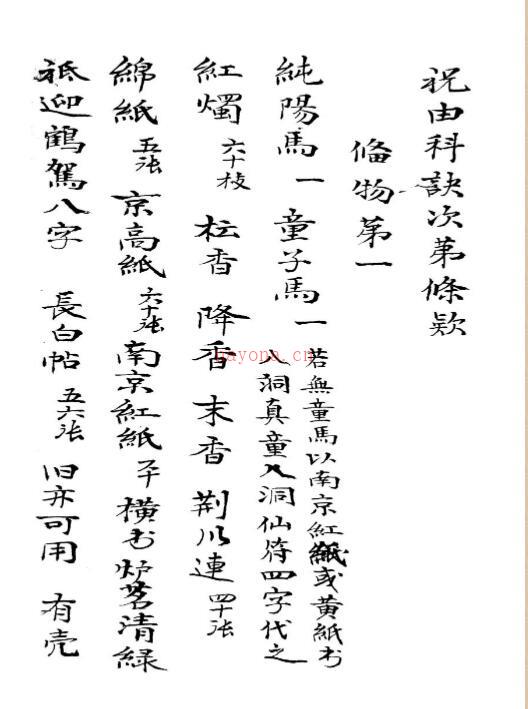 祝由科訣次第條欵
俻物第一
純陽馬一 童子馬一 若無童馬以南京紅紙或黃紙书
八洞真童八洞仙符四字代之
紅燭 六十枝 枟香 降香 末香 荆川連 四十张
綿紙 五张 京高紙 六十张 南京紅紙 横书炉茗清緑
祇迎鶴駕八字 長白帖 五六张 旧亦可用 有壳
nayona.cn